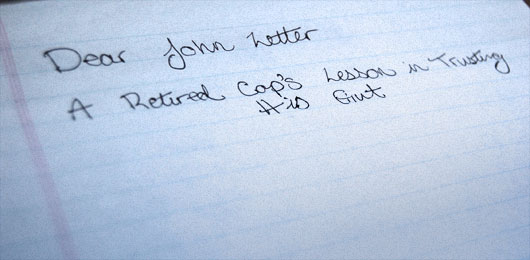 Dear John Letter
A Retired Cop's Lesson in Trusting
His Gut